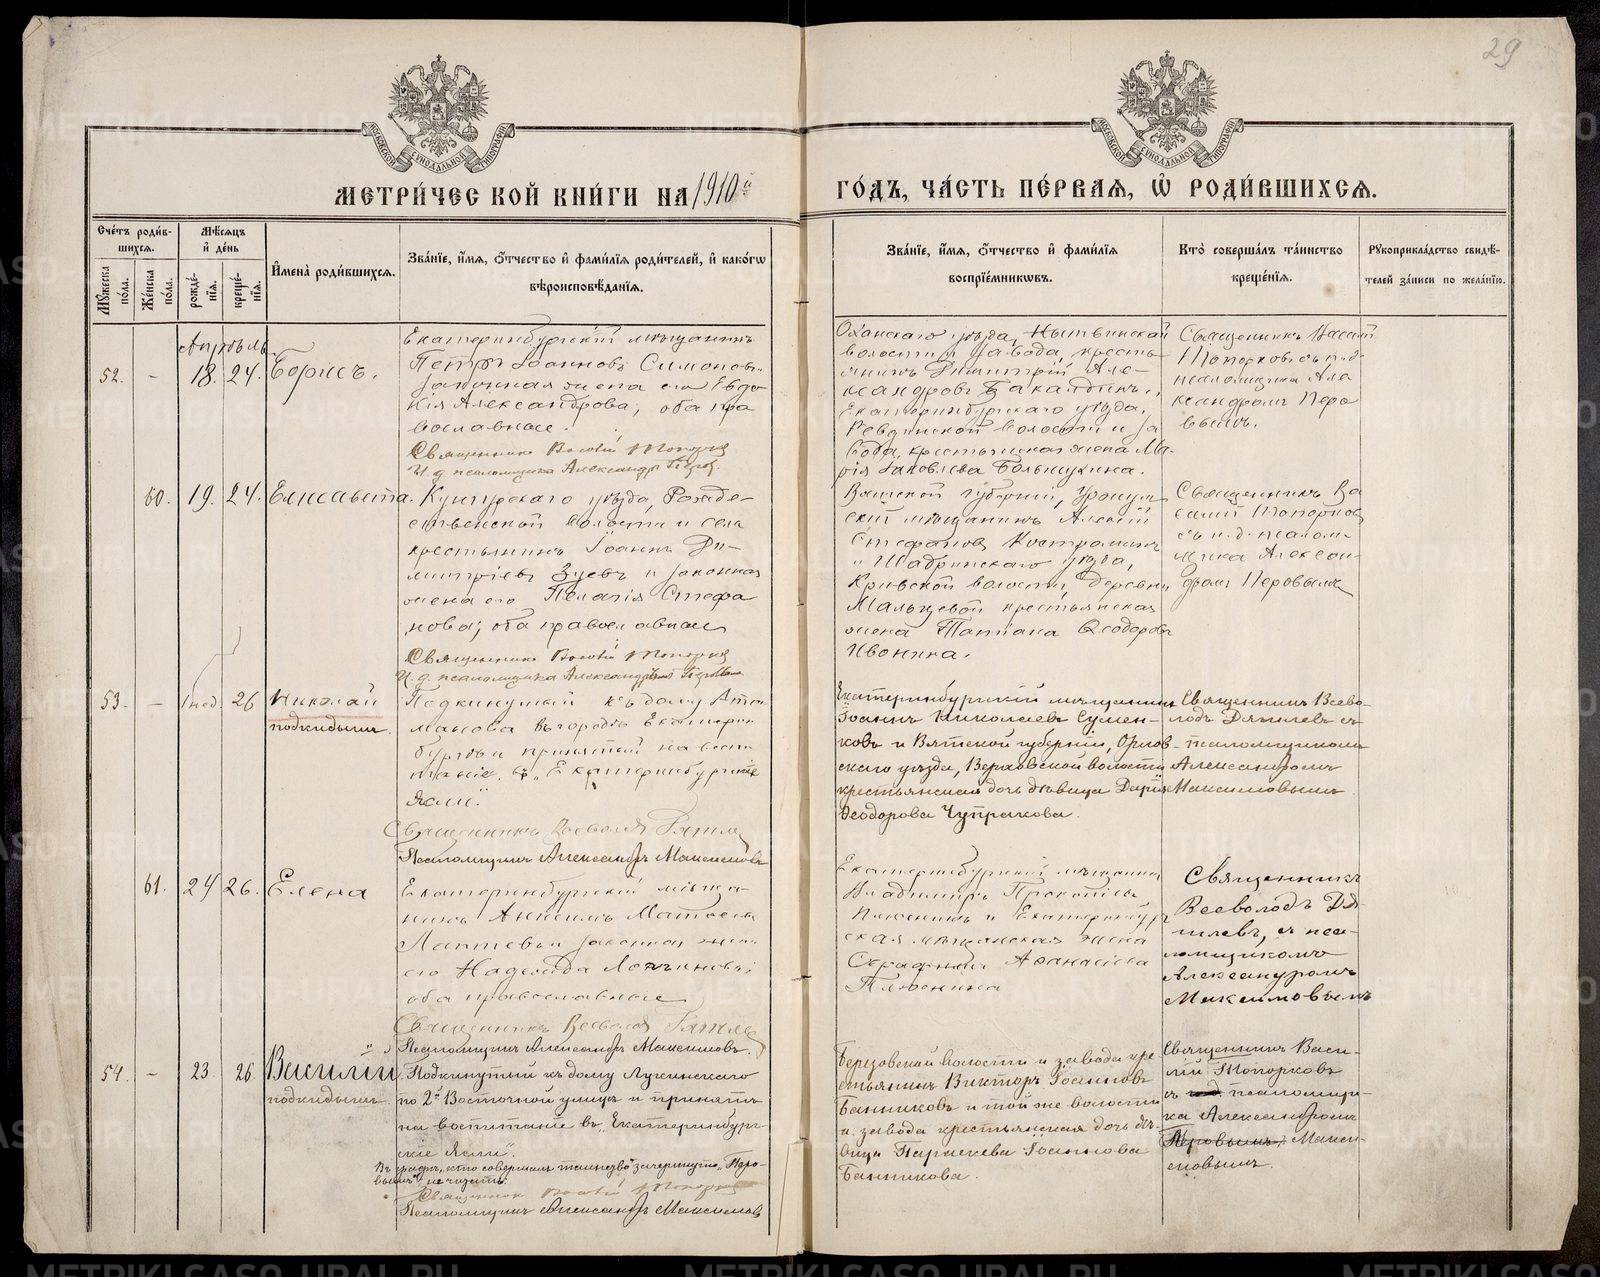 29
МЕТРИ́ЧЕСКОЙ КНИ́ГИ НА 1910й
ГО́ДЪ, ЧА́СТЬ ПЕ́РВАЯ, Ѡ҆ РОДИ́ВШИХСЯ.
Сче́тъ роди́вшихся.
Му́жеска по́ла.
Же́нска по́ла.
Мѣ́сяцъ и҆ де́нь
рожде́нїя.
креще́нїя.
И҆мена̀ роди́вшихся.
Зва́нїе, и҆́мя, о҆́тчество и҆ фами́лїя роди́телей, и҆ како́гѡ
вѣроисповѣ́данїя.
Зва́нїе, и҆́мя, о҆́тчество и҆ фами́лїя
воспрїе́мникѡвъ.
Кто̀ соверша́лъ та́инство
креще́нїя.
Рукоприкла́дство свидѣ́-
телей за́писи по жела́нїю.
Апрѣль
52. - 18. 24. Борисъ.
Екатеринбургскій мѣщанинъ
Петръ Іоанновъ Симоновъ,
законная жена его Евдо-
кія Александрова, оба пра-
вославные.
Священникъ Топорковъ
И. д. псаломщика Александръ Перов.
Оханскаго уѣзда, Нытвинской
волости и завода, кресть-
янинъ Димитрій Але-
ксандровъ
Екатеринбургскаго уѣзда,
Ревдинской волости и за
вода, крестьянская жена Ма-
рія Яковлева
Священникъ Васил
Топорковъ съ и. д.
псаломщика Але
ксандромъ Перо
вымъ.
60. 19. 24. Елисавета.
Кунгурскаго уѣзда, Рожде-
ственской волости и села
крестьянинъ Іоаннъ Ди-
митріевъ Зуевъ и законная
жена его Пелагія Стефа
нова; оба православные
Священникъ Топорковъ
И. д. псаломщика Александръ Перовъ
Вятской губерніи, Уржум
скій мѣщанинъ Алексій
Стефановъ Костроминъ
и Шадринскаго уѣзда,
Кривской волости, деревни
Мальцевой крестьянская
жена Татіана Ѳеодоров
Ивонина.
Священникъ Ва
силій Топорков
съ и. д. псалом-
щика Алексан-
дромъ Перовымъ
53. - 1 нед. 26 Николай
подкидышъ.
Подкинутый къ дому
въ городѣ Екатерин
бургѣ и принятый на воспи
таніе въ „Екатеринбургскіе
ясли".
Священникъ Всеволодъ Дягилев
Псаломщикъ Александръ Максимовъ
Екатеринбургскій мѣщанинъ
Іоаннъ Николаевъ Сумен-
ковъ и Вятской губерніи, Орлов-
скаго уѣзда, Верховской волости
крестьянская дочь дѣвица Дарія
Ѳеодорова Чупракова.
Священникъ Всево-
лодъ Дягилевъ съ
псаломщикомъ
Александромъ
Максимовымъ
61. 24 26. Елена
Екатеринбургскій мѣща-
нинъ Матѳеевъ
Лаптевъ и законная жена
его Надежда
оба православные
Священникъ Всеволодъ Дягилев
Псаломщикъ Александръ Максимовъ.
Екатеринбургскій мѣщанинъ
Владиміръ Прокопіевъ
и Екатеринбург
ская мѣщанская жена
Аѳанасіева
Священникъ
Всеволодъ Дя-
гилевъ, съ пса-
ломщикомъ
Александромъ
Максимовымъ
54. - 23. 26. Василій
подкидышъ.
Подкинутый къ дому Лукинскаго
по 2й Восточной улицѣ и принятъ
на воспитаніе въ „Екатеринбург-
скіе Ясли".
Въ графѣ „кто совершалъ таинство" зачеркнуто „Перо-
вымъ" не читать.
Священникъ Топорковъ
Псаломщикъ Александръ Максимовъ
Березовской волости и завода кре-
стьянинъ Викторъ Іоанновъ
Банниковъ и той же волости
и завода крестьянская дочь дѣ-
вица Параскева Іоаннова
Банникова.
Священникъ Васи-
лій Топорковъ
съ псаломщи-
ка Александромъ
Перовымъ, Макси-
мовымъ.
METRIKI.GASO-URAL.RU